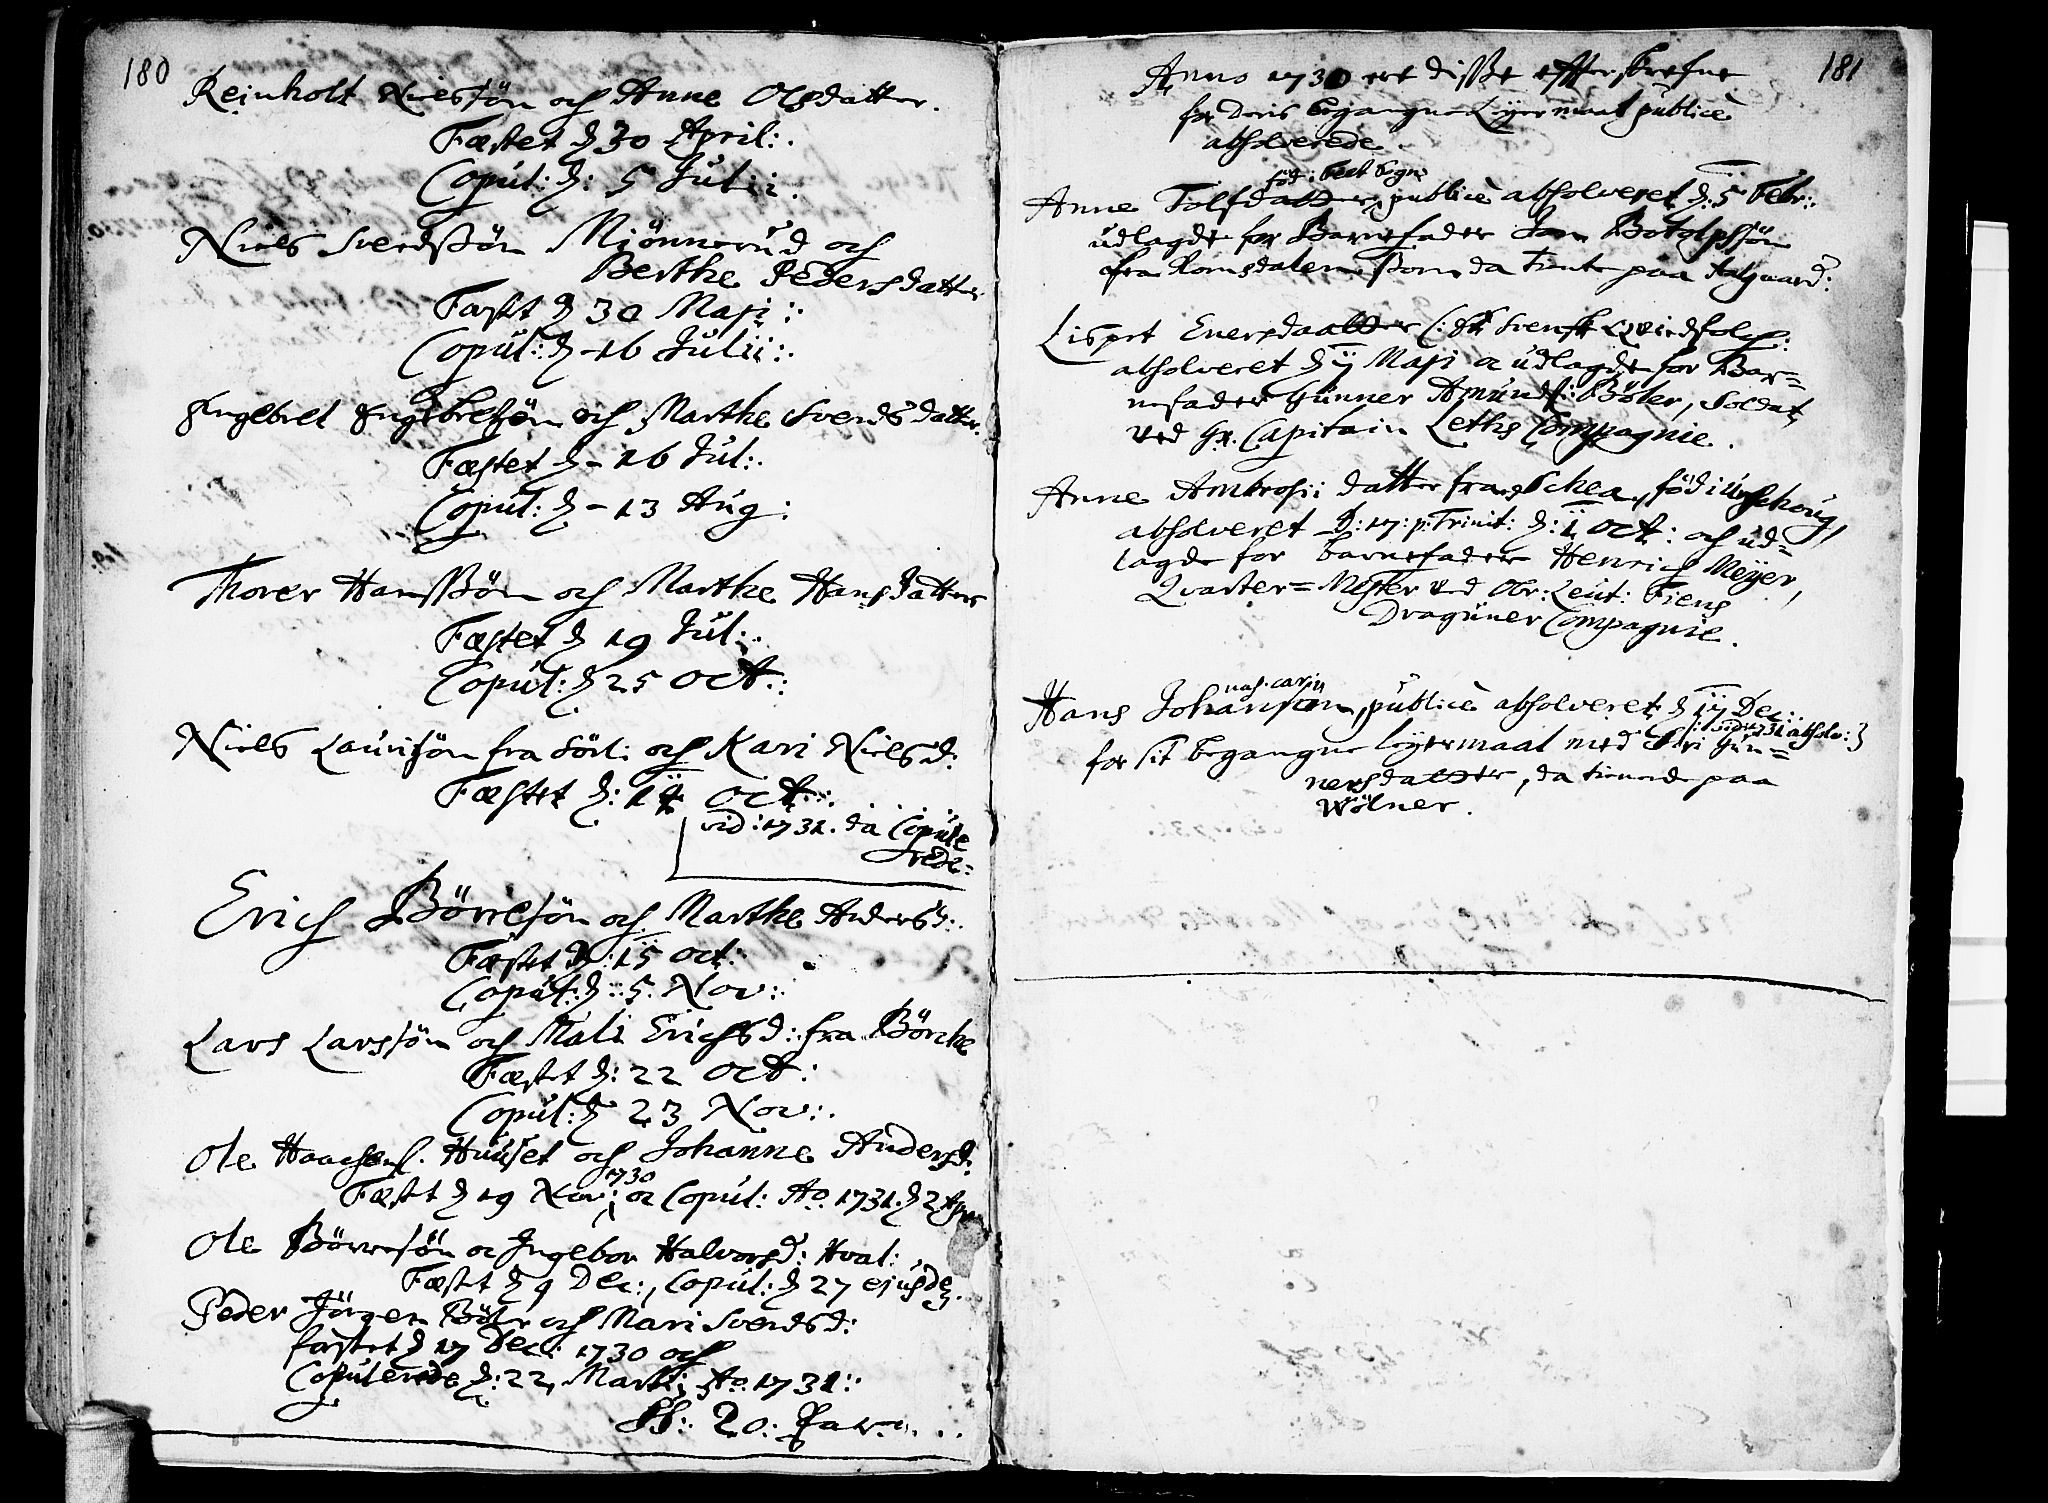 180
Reinholt Nielsøn och Anne Olsdatter.
Fæstet d 30 April:.
Copul: d: 5 Julii.
Niels Svendssøn Mjönnerud och
Berthe Pedersdatter
Fæstt d 30 Maji:
Copul: d - 16 Julii:.
Ingebret Ingebretsøn och Marthe Svendsdatter.
Fæstet d - 16 Jul:.
Copul: d - 13 Aug:
Thorer Hansssøn och Marthe Hansdatter
Fæstet d 19 Jul:.
Copul: d 25 Oct:.
Niels Lauritsøn fra Sörl: och Kari Nielsd:
Fæstet d: 14 Oct:.
vid: 1731. da Copule
rede=
Erich Börresøn och Marthe Andersd:.
Fæstet d: 15 Oct:
Copul: d: 5. Nov:.
Lars Larssøn och Mali Erichsd: fra Börche
Fæstet d: 22 Oct:
Copul: d 23 Nov:.
Ole Haachens. Huuset och Johanne Andersd:
1730
Fæstt d 19 Nov: oc Copul: Ao. 1731. d 2 Apr
Ole Börresøn oc Ingebor Halvorsd: Hval:
Fæstet d 9 Dec:, Copul: d 27 ejusd
Peder Jörgen Böler och Mari Svendsd:
fæstet d 17 Dec: 1730 och
Copulerede d: 22 Martij Ao. 1731:.
20: Par
181
Anno 1730 ere disse effterskrefne
for deris begangne Leyermaal publicè
absolverede.
föd i
Anne Tolfsdatter, publicè absolveret d: 5 Febr:.
udlagde for Barnefader Jon Botolpssøn
fra Romsdalen, som da tiente paa Aalgaard:
Lispet Enersdaatter (: et svensk qvindfolch:
absolveret d ij Maji oc udlagde for Bar=
nefader Gunner Amunds: Böler, Soldat
ved Hr. Capitain Leths Compagnie.
Anne Ambrosii datter fra Schea, föd i Urschoug,
absolveret D: 17: p: Trinit: d: 1 Oct: och ud=
lagde for barnefader Henrich Meyer,
Qvarter=Mester ved Obr: Leut: Fiens
Draguner Compagnie.
Hans Johansøn, publicè absolveret d ij Dec:.
for sit begangne leyermaal med Siri Gun=
nersdatter, da tienende paa
Wölner.